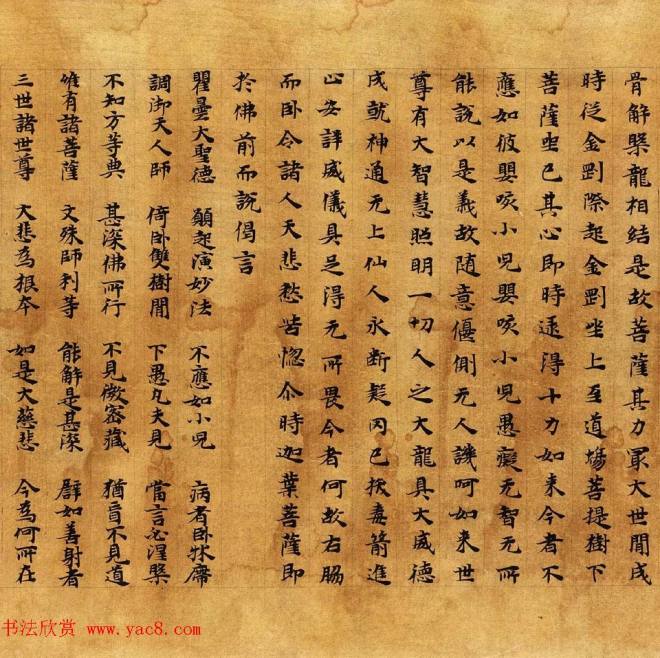 骨解槃龍相結是故菩薩其力冣大世閒成
時從金剛際起金剛坐上至道場菩提樹下
菩薩坐已其心即時逮得十力如来今者不
應如彼嬰咳小兒嬰咳小兒愚癡无智无所
能說以是義故随意偃側无人譏呵如来世
尊有大智慧照明一切人之大龍具大威德
成就神通无上仙人永断疑网已拔毒箭進
止安詳威儀具足得无所畏今者何故右脇
而卧令諸人天悲愁苦惱尒時迦葉菩薩即
於佛前而說偈言
瞿曇大聖德 願起演妙法 不應如小兒 病者卧牀席
調御天人師 倚卧雙樹閒 下愚凡夫見 當言必涅槃
不知方等典 甚深佛所行 不見微密藏 猶盲不見道
唯有諸菩薩 文殊師利等 能解是甚深 譬如善射者
三世諸世尊 大悲為根本 如是大慈悲 今為何所在
书法欣赏 www.yac8.com